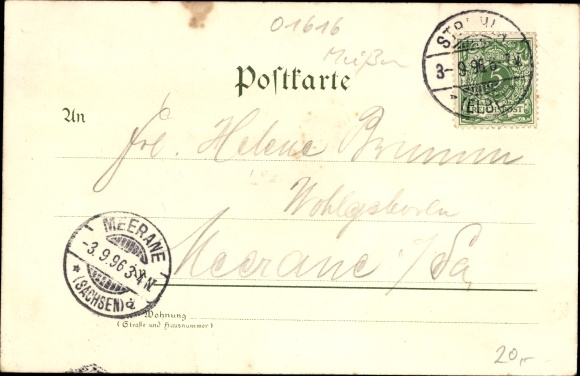 01616
Meißen
Postkarte
An
Frl. Helene Brumm
Wohlgeboren
Meerane i/Sa,
MEERANE
-3.9.96 3-4 N.
(SACHSEN)
3-9.96
(ELBE)
5
Wohnung
(Straße und Hausnummer)
20,-